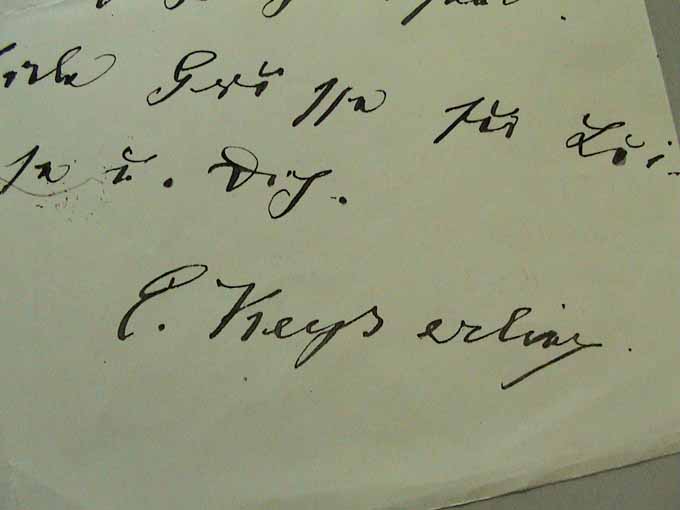 Viele Grüsse für Lui-
se u. Dich.
E. Keyserling.